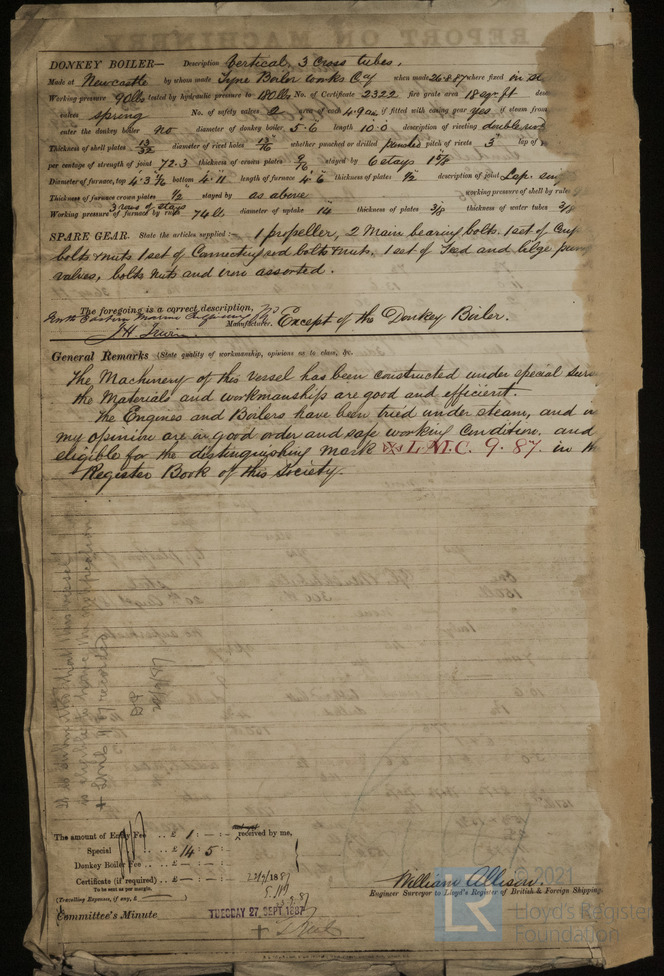 DONKEY BOILER— Description Vertical, 3 Cross tubes,
Made at Newcastle by whom made Tyne Boiler Works Coy when made 26.8.87 where fixed in
Working pressure 90lbs tested by hydraulic pressure to 180lbs No. of Certificate 2322 fire grate area 18 sqr ft
valves spring No. of safety valves 2 area of each 4.9 if fitted with easing gear yes if steam from
enter the donkey boiler no diameter of donkey boiler 5.6 length 10.0 description of riveting double
Thickness of shell plates 13/32 diameter of rivet holes 13/16 whether punched or drilled punched pitch of rivets 3" lap of
per centage of strength of joint 72.3 thickness of crown plates 9/16 stayed by 6 stays 1 5/8
Diameter of furnace, top 4.3 bottom 4.11 length of furnace 4.6 thickness of plates 1/2 description of joint Lap
Thickness of furnace crown plates 1/2 stayed by as above working pressure of shell by rules
3 rows of stays
Working pressure of furnace by rules 74 diameter of uptake 14 thickness of plates 3/8 thickness of water tubes 3/8
SPARE GEAR. State the articles supplied:— 1 propeller, 2 Main bearing bolts. 1 set of
bolts & nuts 1 set of Connecting rod bolts & nuts. 1 set of Feed and bilge pump
valves, bolts nuts and iron assorted.
The foregoing is a correct description,
North Eastern Marine Manufacturer. Except of the Donkey Boiler.
General Remarks (State quality of workmanship, opinions as to class, &c.
The Machinery of this vessel has been constructed under special
the Materials and workmanships are good and efficient.
The Engines and Boilers have been tried under steam, and in
my opinion are in good order and safe working condition. and
eligible for the distinguishing mark L.M.C. 9.87. in
Register Book of this Society.
It is submitted that this vessel
is eligible to have
+ LMC 9.87 recorded
The amount of Entry Fee .. £ 1 : - : - received by me,
Special .. £ 14 : 5 :
Donkey Boiler Fee .. £ — : — :
Certificate (if required) .. £ — : — : 1887
To be sent as per margin.
(Travelling Expenses, if any, £ )
William Allison.
Engineer Surveyor to Lloyd's Register of British & Foreign Shipping.
Committee's Minute TUESDAY 27 SEPT 1887
© 2021
LR
Lloyd's Register
Foundation